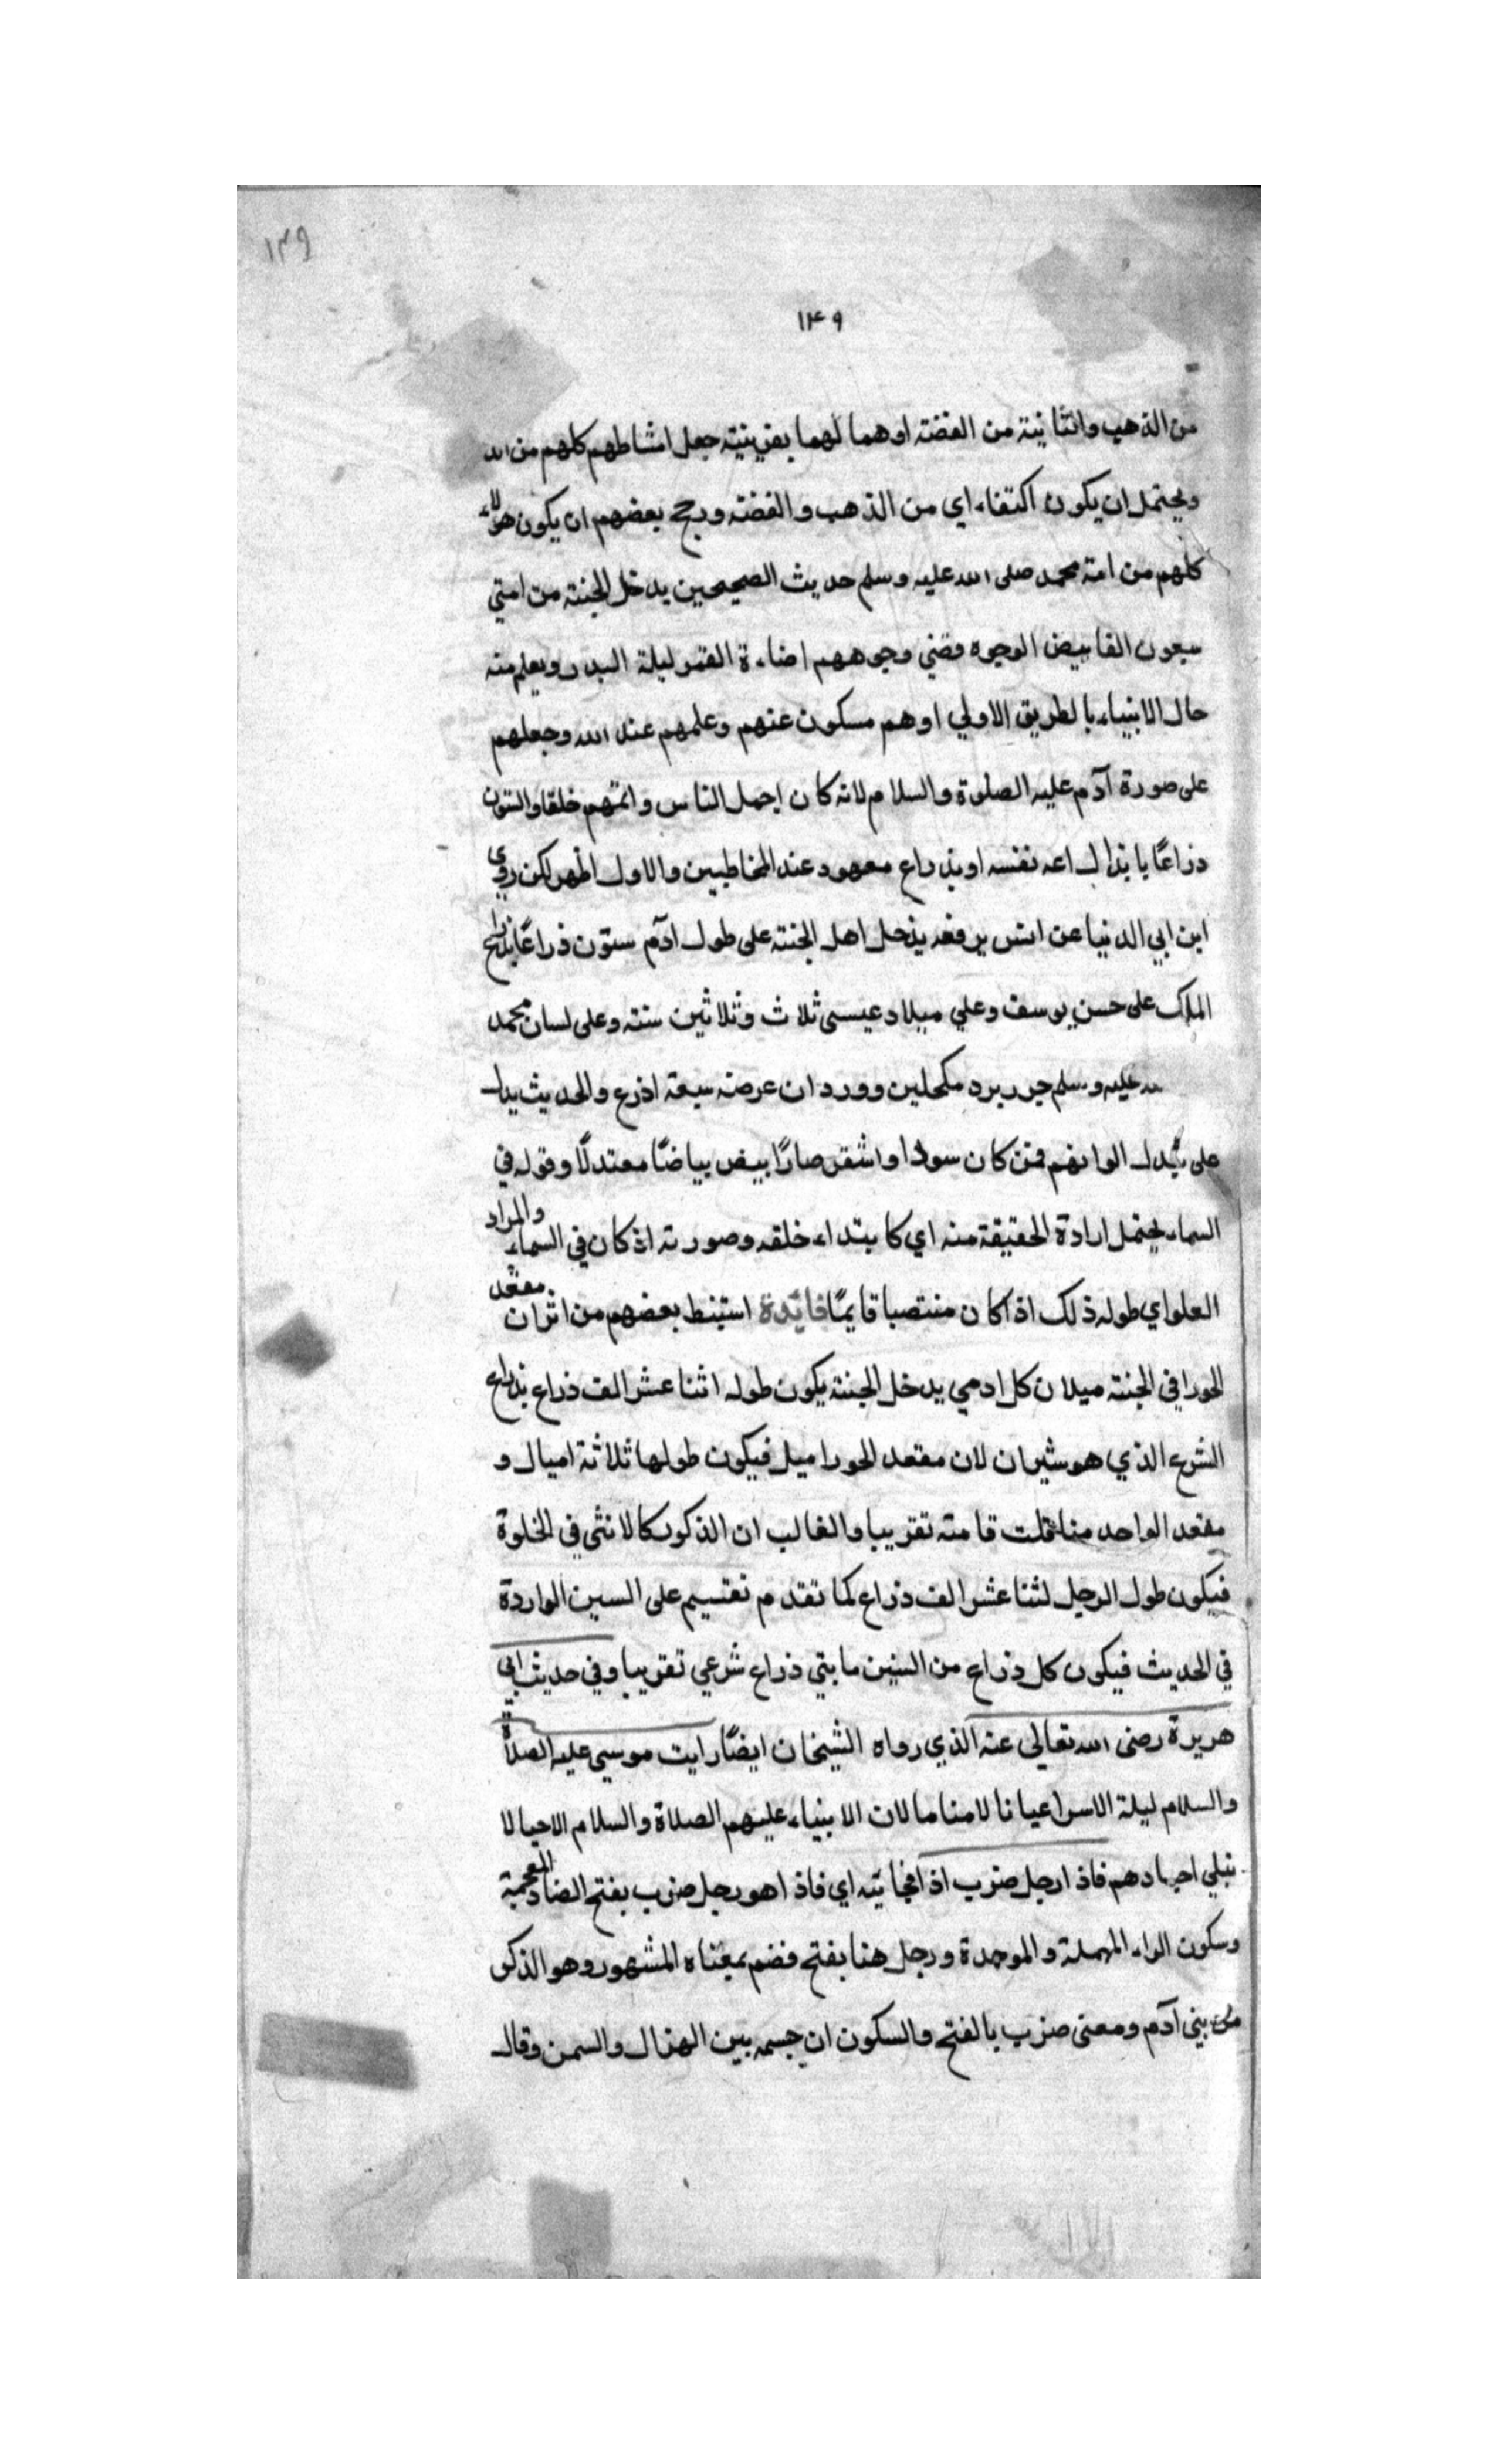 ١٣٩
١٤٩
من الذهب والثانية من الفضة اوهما لهما بقرينية جعل امشاطهم كلهم من
ويحتمل ان يكون اكتفاء اي من الذهب والفضة ورجح بعضهم ان يكون هؤلاء
كلهم من امة محمد صلى الله عليه وسلم حديث الصحيحين يدخل الجنة من امتي
سبعون الفا بيض الوجوه وجوههم اضاءة القمر ليلة البدر ويعلم منه
حال الانبياء بالطريق الاولي اوهم مسكون عنهم وعلمهم عند الله وجعلهم
على صورة آدم عليه الصلوة والسلام لانه كان اجمل الناس واتمهم خلقا والستون
ذراعًا نفسه او بذراع معهود عند المخاطبين والاول اظهر لكن روي
ابن ابي الدنيا عن انس يرفعه يدخل اهل الجنة على طول ادآم ستون ذراعًا بذراع
الملك على حسن يوسف وعلي ميلاد عيسى ثلاث وثلاثين سنة وعلى لسان محمد
عليه وسلم جرد مرد مكحلين وورد ان عرضه سبعة اذرع والحديث يدل
على تبدل الوانهم فمن كان سودا او اشقر صار ابيض بياضًا معتدلًا وقوله في
السماء يحتمل ارادة الحقيقة منه اي كابتداء خلقه وصورته اذ كان في السماء والمراد
العلو اي طوله ذلك اذا كان منتصبا قايمًا فائدة استنبط بعضهم من اثر ان مقعد
الحورا في الجنة ميلا ن كل ادمي يدخل الجنة يكون طوله اثنا عشر الف ذراع بذراع
الشرع الذي هو شبران لان مقعد الحورا ميل فيكون طولها ثلاثة اميال و
مقعد الواحد منا قامته تقريبا والغالب ان الذكور كالانثى في الخلوة
فيكون طول الرجل لثنا عشر الف ذراع كما تقدم تقسيم على الستين الواردة
في الحديث فيكون كل ذراع من الستين مايتي ذراع شرعي تقريبا وفي حديث ابي
هريرة رضى الله تعالى عنه الذي رواه الشيخان ايضًا رايت موسي عليه الصلاة
والسلام ليلة الاسرا عيانا لا مناما لان الانبياء عليهم الصلاة والسلام الاحيا لا
تبلي اجسادهم فاذا رجل ضرب اذا فجائية اي فاذا هو رجل ضرب بفتح الضاد المعجمة
وسكون الراء المهملة والموحدة ورجل هنا بفتح فضم بمعناه المشهور وهو الذكر
من بني آدم ومعنى ضرب بالفتح والسكون ان جسمه بين الهزال والسمن وقال